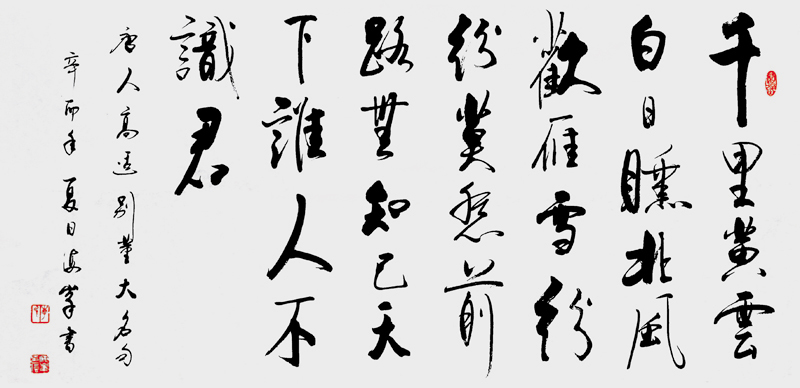 千里黄雲
白日曛北風
歡雁雪紛
紛莫愁前
路無知己天
下誰人不
識君
唐人高適別董大名句
辛丑年夏日海峯書